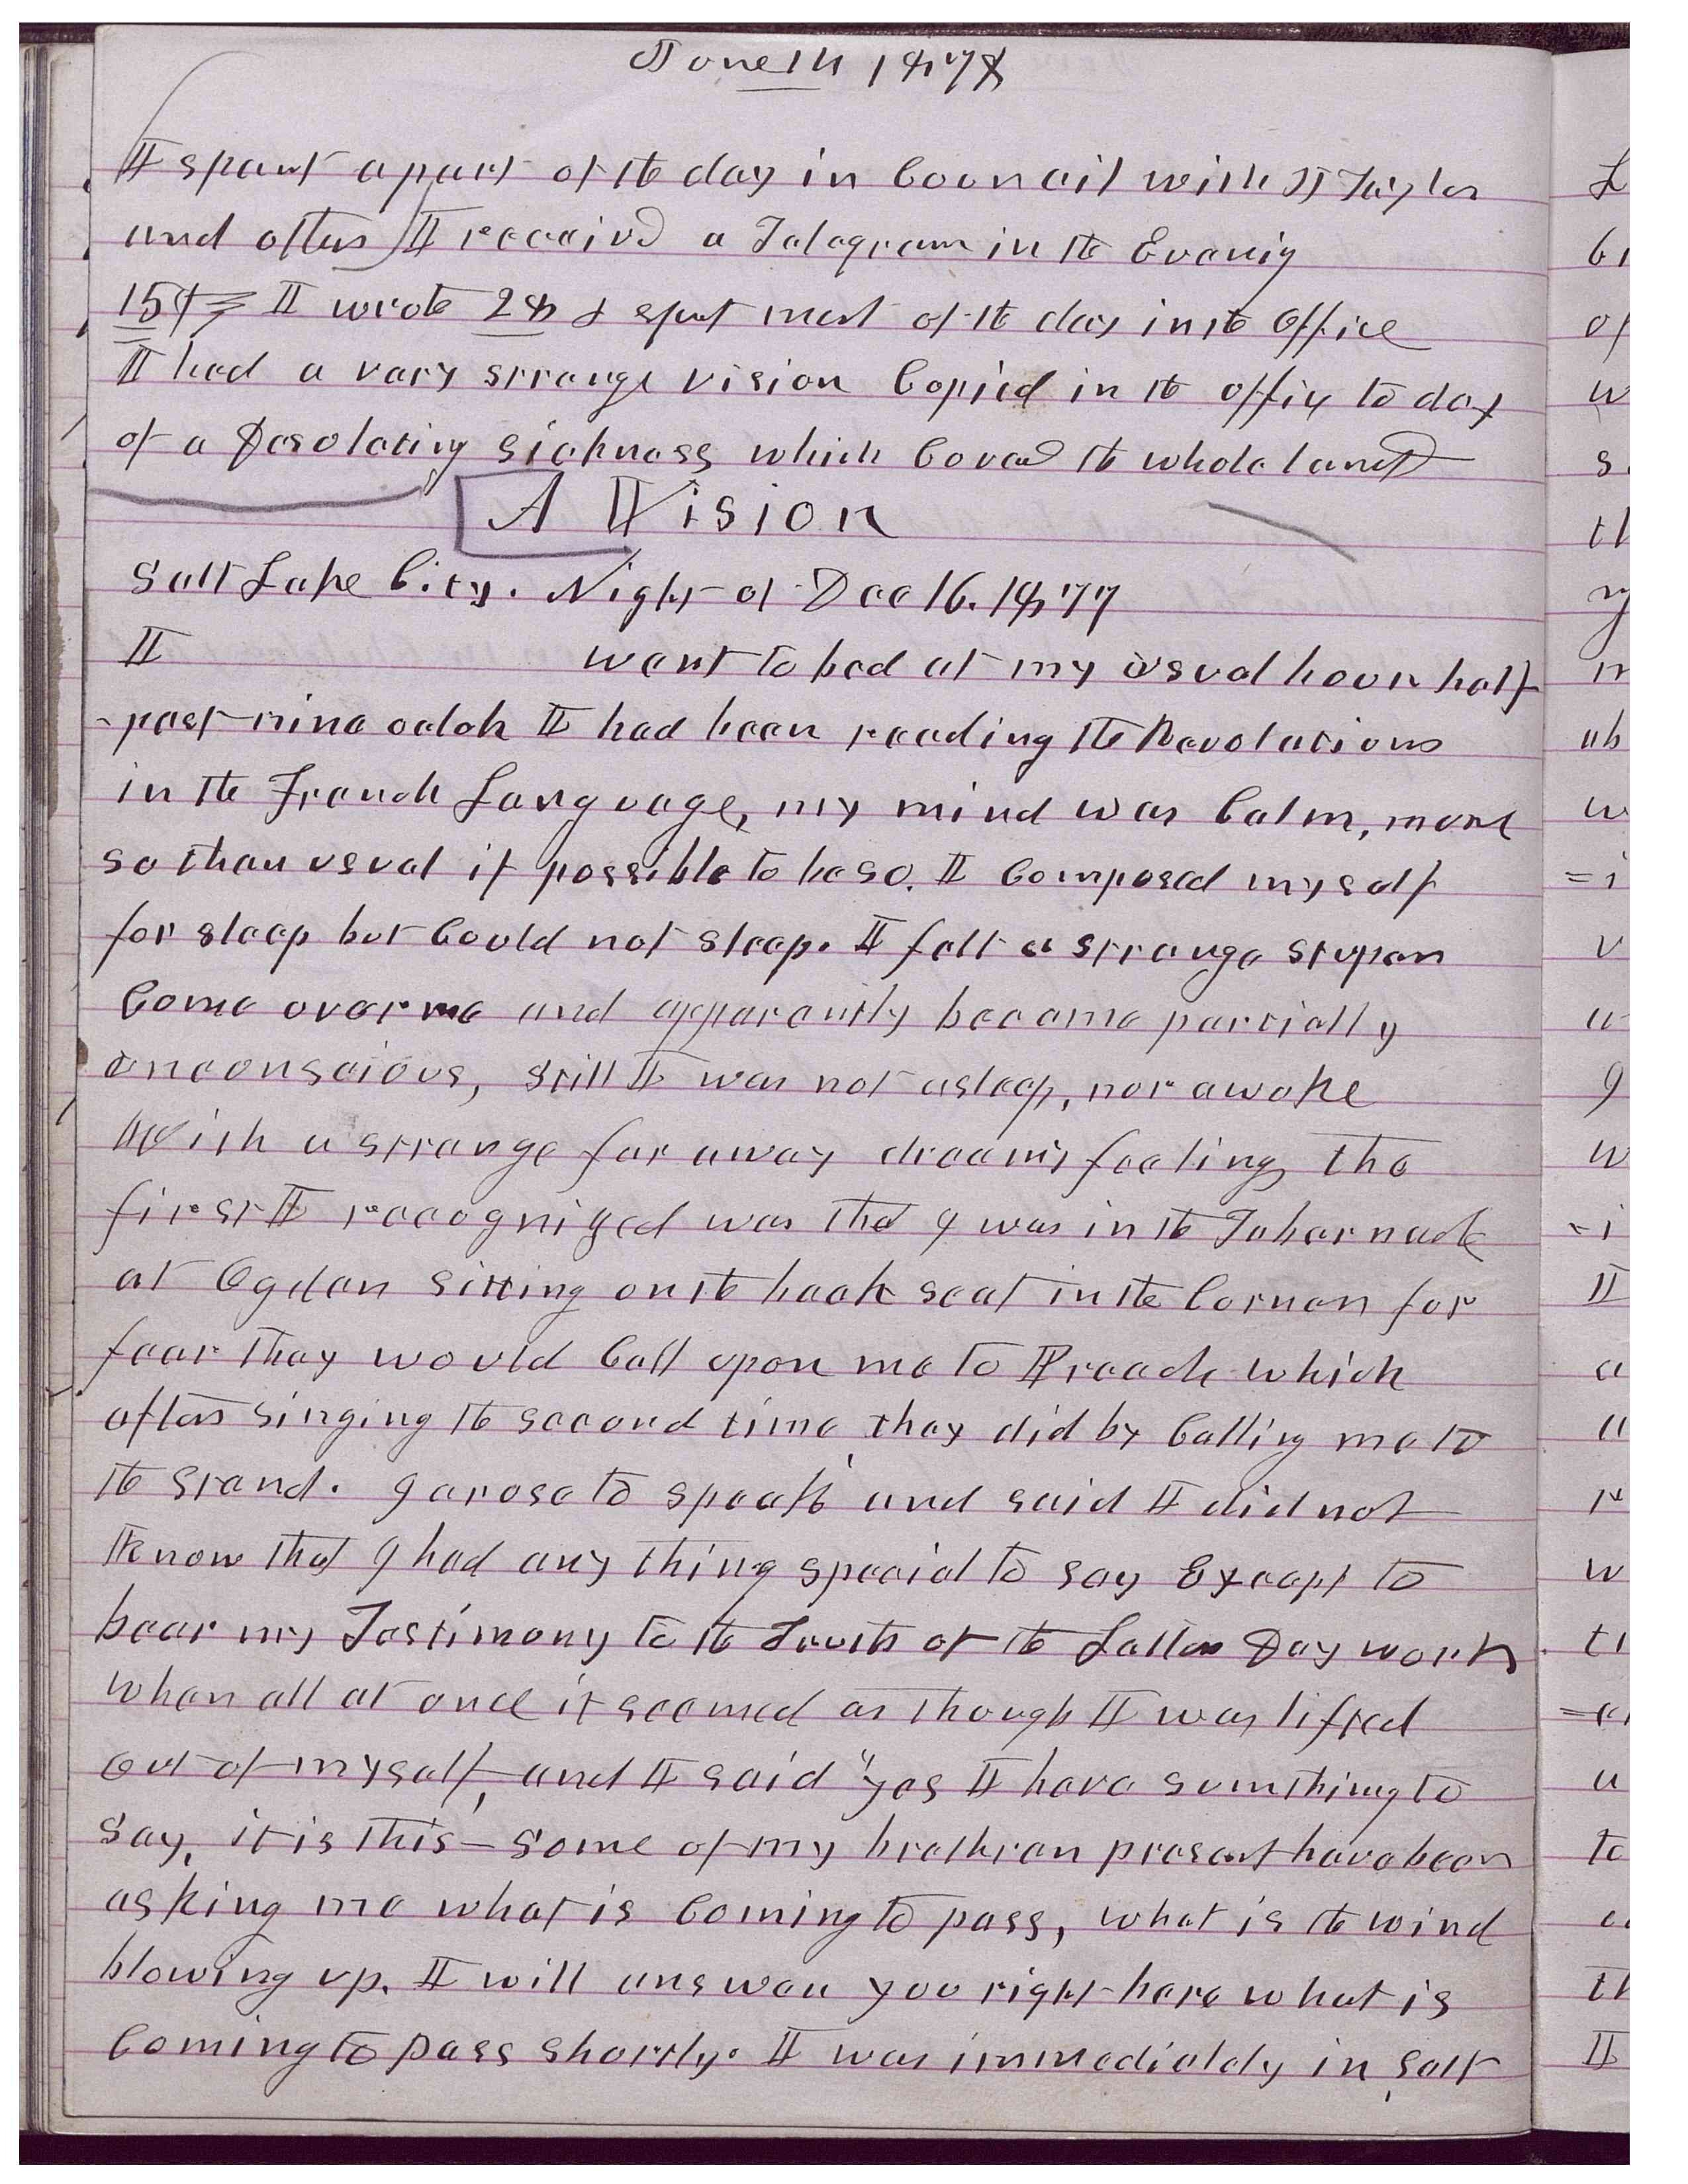 June 14 1878
I spent a part of the day in Council with J Taylor
and others I received a Telegram in the Evenig
15th I wrote 28 & spent most of the day in the Office
I had a vary strange vision Copied in the offiy to day
of a Desolating sickness which Coverd the whole land
A Vision
Salt Lake City. Night of Dec 16. 1877
I went to bed at my usual hour half
past nine oclok I had been reading the Revelations
in the French Language, my mind was Calm, more
so than usual if possible to be so. I Composed myself
for sleep but Could not sleep. I felt a strange stupor
Come over me and apparently became partially
unconscious, still I was not asleep, nor awake
With a strange far away dreamy feeling the
first I recognized was that I was in the Tabernacle
at Ogden sitting on the back seat in the Corner for
fear they would Call upon me to Preach which
after singing the second time they did by Calling me to
the stand. I arose to speak and said I did not
Know that I had any thing special to say Except to
bear my Testimony to the Truth of the Latter Day work
when all at once it seemed as though I was lifted
out of myself, and I said "yes I have sumthing to
say, it is this - some of my brethren present have been
asking me what is Coming to pass, what is the wind
blowing up. I will answer you right here what is
Coming to pass shortly. I was immediately in Salt